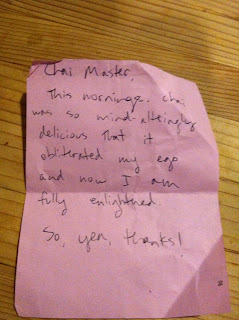 Chai Master,
This mornings chai
was so mind-alteringly
delicious that it
obliterated my ego
and now I am
fully enlightned.
So, yea, thanks!